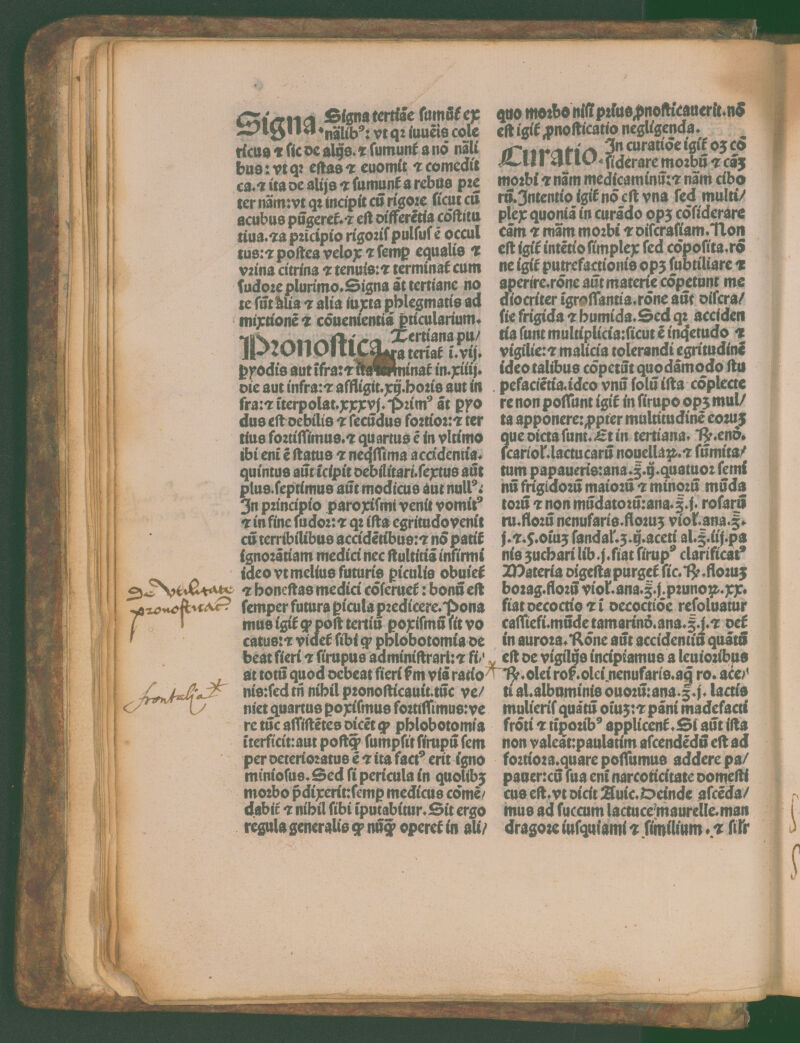 Signa. Signa tertiãe sumũt̃ ex
nãlib⁹: vt qꝛ iuuẽis cole
ricus ⁊ sic de alijs. ⁊ sumunt̃ a nõ nãli
bus: vt qꝛ estas ⁊ euomit ⁊ comedit
ca. ⁊ ita de alijs ⁊ sumunt̃ a rebus pre
ter nãm: vt qꝛ incipit cũ rigore sicut cũ
acubus pũgeret̃. ⁊ est differẽtia cõstitu
tiua. ꝛa pꝛicipio rigoris pulsus ẽ occul
tus: ⁊ postea velox ⁊ semꝑ equalis ⁊
vꝛina citrina ⁊ tenuis: ⁊ terminat̃ cum
sudoꝛe plurimo. Signa ãt tertiane no
te sũt alia ⁊ alia iuxta phlegmatis ad
mixtionẽ ⁊ cõuenientiã ꝑticularium.
Pꝛonostica. Tertiana pu/
ra teriat̃ ĩ. vij.
ꝑyodis aut ĩfra: ⁊ ita terminat̃ in. xiiij.
die aut infra: ⁊ affligit. xij. hoꝛis aut in
fra: ⁊ ĩterpolat. xxxvj. Pꝛim⁹ ãt ꝑyo
dus est debilis ⁊ secũdus foꝛtioꝛ: ⁊ ter
tius foꝛtissimus. ⁊ quartus ẽ in vltimo
ibi eni ẽ status ⁊ neq̃ssima accidentia.
quintus aũt ĩcipit debilitari. sextus aũt
plus. septimus aũt modicus aut null⁹:
In pꝛincipio paroxismi venit vomit⁹
⁊ in fine sudoꝛ: ⁊ qꝛ ista egritudo venit
cũ terribilibus accidẽtibus: ⁊ nõ patit̃
ignoꝛãtiam medici nec stultitiã infirmi
ideo vt melius futuris ꝑiculis obuiet̃
⁊ honestas medici cõseruet̃: bonũ est
semper futura ꝑicula pꝛedicere. Pona
mus igit̃ ꝙ post tertiũ ꝑoxismũ sit vo
catus: ⁊ videt̃ sibi ꝙ phlobotomia de
beat fieri ⁊ sirupus administrari: ⁊ fi/
at totũ quod debeat fieri ẜm viã ratio
nis: sed tñ nihil pꝛonosticauit. tũc ve/
niet quartus ꝑoxismus foꝛtissimus: ve
re tũc assistẽtes dicẽt ꝙ phlobotomia
ĩterficit: aut postꝙ̃ sumpsit sirupũ sem
per deterioꝛatus ẽ ⁊ ita fact⁹ erit igno
miniosus. Sed si pericula in quolibꝫ
moꝛbo p̃dixerit: semꝑ medicus cõmẽ/
dabit̃ ⁊ nihil sibi ĩputabitur. Sit ergo
regula generalis ꝙ nũꝙ̃ operet̃ in ali/
De vtilitate
pronosticac.
frontalia
quo moꝛbo nisi pꝛius ꝓnosticauerit. nõ
est igit̃ ꝓnosticatio negligenda.
Curatio. In curatiõe igit̃ oꝫ cõ
siderare moꝛbũ ⁊ cãꝫ
moꝛbi ⁊ nãm medicaminũ: ⁊ nãm cibo
rũ. Intentio igit̃ nõ est vna sed multi/
plex quoniã in curãdo opꝫ cõsiderare
cãm ⁊ mãm moꝛbi ⁊ discrasiam. Non
est igit̃ intẽtio simplex sed cõposita. rõ
ne igit̃ putrefactionis opꝫ subtiliare ⁊
aperire. rõne aũt materie cõpetunt me
diocriter ĩgrossantia. rõne aũt discra/
sie frigida ⁊ humida. Sed qꝛ acciden
tia sunt multiplicia: sicut ẽ inq̃etudo ⁊
vigilie: ⁊ malicia tolerandi egritudinẽ
ideo talibus cõpetũt quodãmodo stu
pefaciẽtia. ideo vnũ solũ ista cõplecte
re non possunt igit̃ in sirupo opꝫ mul/
ta apponere: ꝓpter multitudinẽ eoꝛuꝫ
que dicta sunt. Et in tertiana. ℞. end.
scariol̃. lactucarũ nouellaꝝ. ⁊ sũmita/
tum papaueris: ana. ℥. ij. quatuoꝛ semi
nũ frigidoꝛũ maioꝛũ ⁊ minoꝛũ mũda
toꝛũ ⁊ non mũdatoꝛũ: ana. ℥. j. rosarũ
ru. floꝛũ nenufaris. floꝛuꝫ viol̃. ana. ℥.
j. ⁊. s. oĩuꝫ sandal̃. ʒ. ij. aceti al. ℥. iij. pa
nis ʒuchari lib. j. fiat sirup⁹ clarificat⁹
Materia digesta purget̃ sic. ℞. floꝛuꝫ
boꝛag. floꝛũ viol̃. ana. ℥. j. pꝛunoꝝ. xx.
fiat decoctio ⁊ ĩ decoctiõe resoluatur
cassiefi. mũde tamarind. ana. ℥. j. ⁊ det̃
in auroꝛa. Rõne aũt accidentiũ quãtũ
est de vigilijs incipiamus a leuioꝛibus
℞. olei ros̃. olei nenufaris. aq̃ ro. ace/
ti al. albuminis ouoꝛũ: ana. ℥. j. lactis
mulieris quãtũ oĩuꝫ: ⁊ pãni madefacti
frõti ⁊ tĩpoꝛib⁹ applicent̃. Si aũt ista
non valeãt: paulatim ascendẽdũ est ad
foꝛtioꝛa. quare possumus addere pa/
pauer: cũ sua eni narcoticitate domesti
cus est. vt dicit Auic. Deinde ascẽda/
mus ad succum lactuce maurelle. man
dragoꝛe iusquiami ⁊ similium. ⁊ sil̃r